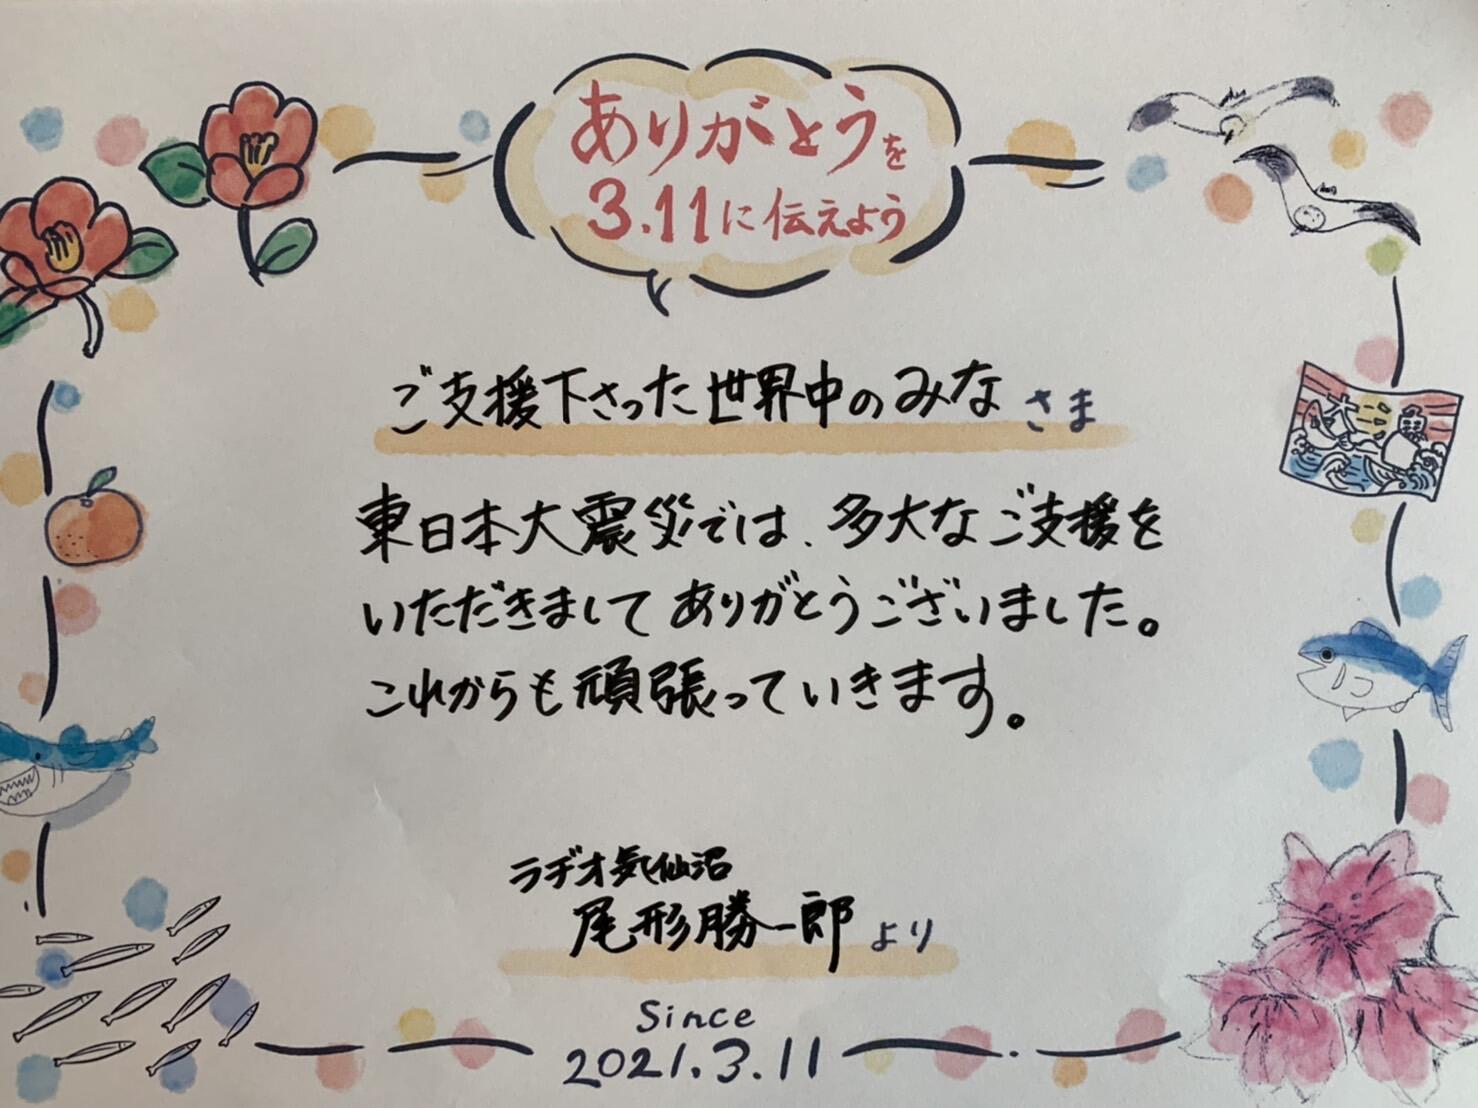 ありがとうを
3.11に伝えよう
ご支援下さった世界中のみなさま
東日本大震災では、多大なご支援を
いただきましてありがとうございました。
これからも頑張っていきます。
ラヂオ気仙沼
尾形勝一郎より
Since
2021.3.11